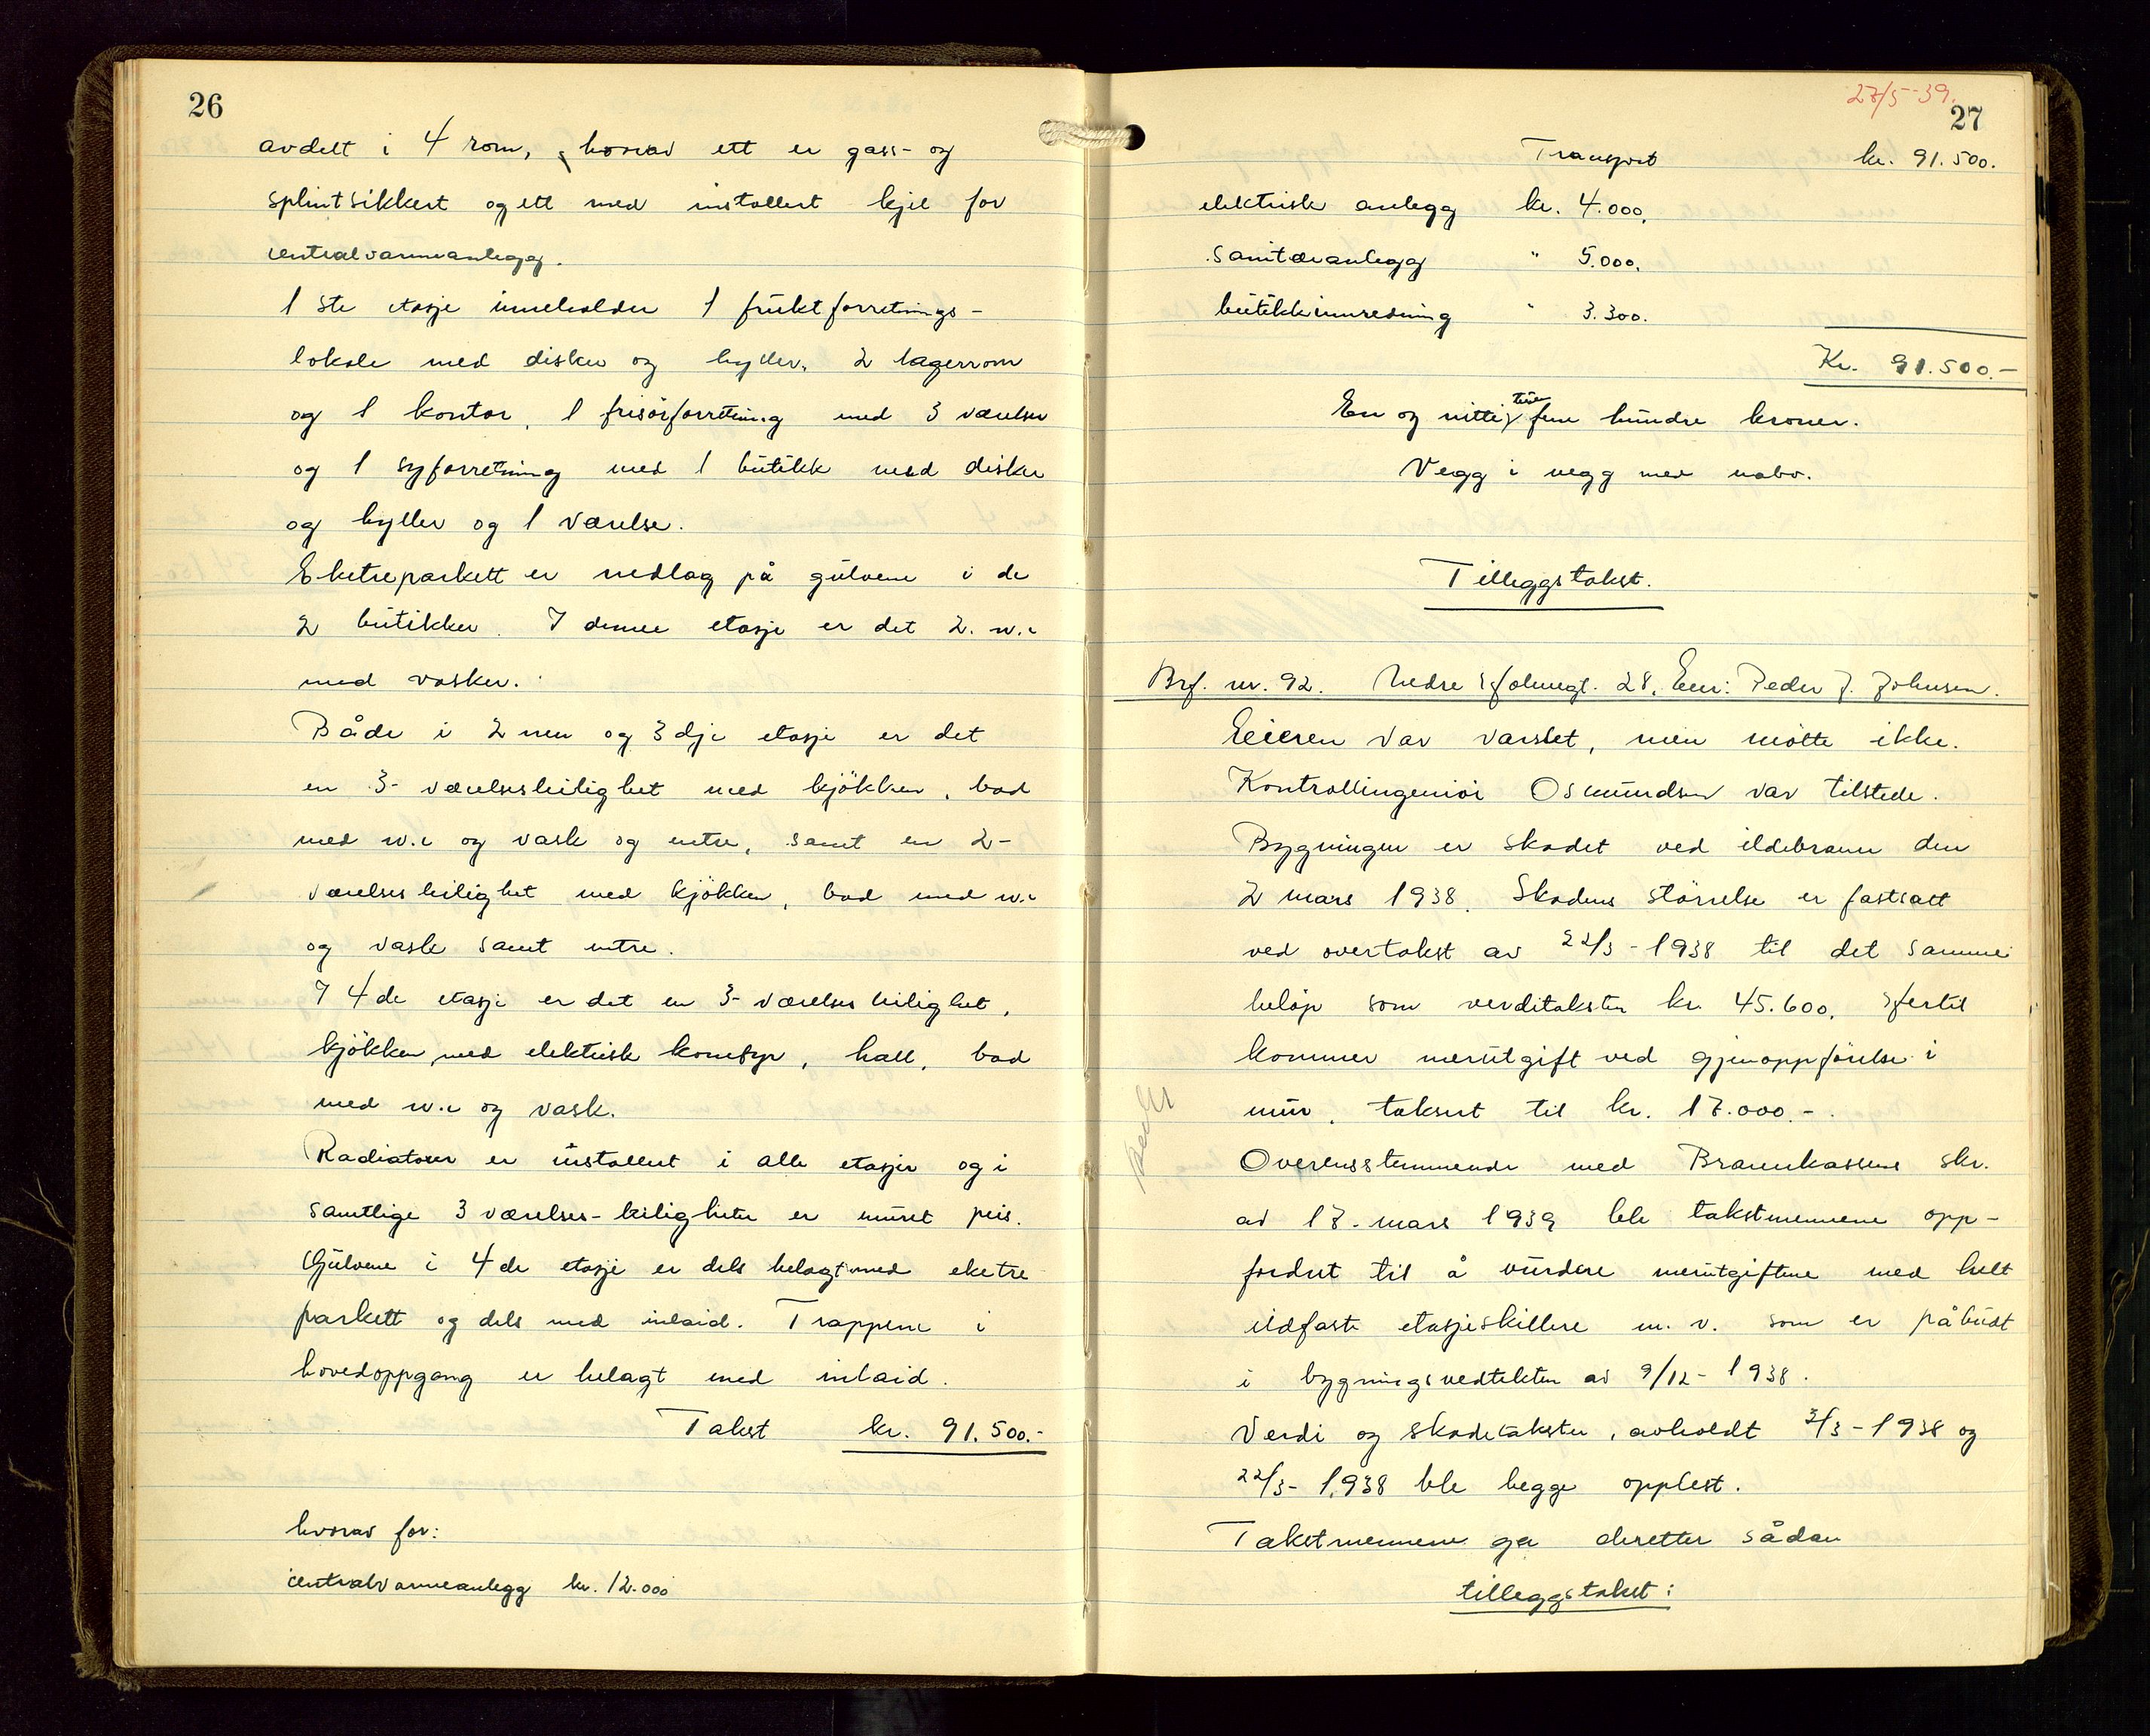 26
avdelt i 4 rom, hvorav ett er gass- og
splintsikkert og ett med installert kjel for
centralvarmeanlegg.
1 ste etasje inneholder 1 fruktforretnings-
lokale med disker og hyller, 2 lagerrom
og 1 kontor, 1 frisörforretning med 3 værelser
og 1 syforretning med 1 butikk med disker
og hyller og 1 værelse.
Eketreparkett er nedlag på gulvene i de
2 butikker. I denne etasje er det 2. w.c
med vasker.
Både i 2 nen og 3 dje etasje er det
en 3- værelsesleilighet med kjökken, bad
med w.c og vask og entre, samt en 2-
værelsesleilighet med kjökken, bad med w.c
og vask samt entre.
I 4 de etasje er det en 3- værelses leilighet,
kjökken med elektrisk komfyr, hall, bad
med w.c og vask.
Radiatorer er installert i alle etasjer og i
samtlige 3 værelses-leiligheter er muret peis.
Gulvene i 4 de etasje er dels belagt med eketre
parkett og dels med inlaid. Trappene i
hovedoppgang er belagt med inlaid.
Takst kr. 91.500.-
hvorav for:
centralvarmeanlegg kr. 12.000
27/5-39.
27
Transport kr. 91.500.
elektrisk anlegg kr. 4.000.
sanitæranlegg " 5.000.
butikkinnredning " 3.300.
Kr. 91.500.-
En og nitti tusen fem hundre kroner.
Vegg i vegg med nabo.
Tilleggstakst.
Brf. nr. 92. Nedre Holmegt. 28. Eier: Peder J. Johnsen.
Eieren var varslet, men mötte ikke.
Kontrollingeniör Osmundsen var tilstede.
Bygningen er skadet ved ildebrann den
2 mars 1938. Skadens störrelse er fastsatt
ved overtakst av 22/3-1938 til det samme
belöp som verditaksten kr. 45.600. Hertil
kommer merutgift ved gjenoppförelse i
mur, taksert til kr. 17.000.-.
Overensstemmende med Brannkassens skr.
av 17. mars 1939 ble takstmennene opp-
fordret til å vurdere merutgiftene med helt
ildfaste etasjeskillere m. v. som er påbudt
i bygningsvedtekten av 9/12-1938.
Verdi og skadetakster, avholdt 3/3-1938 og
22/3-1938 ble begge opplest.
Takstmennene ga deretter sådan
tilleggstakst: